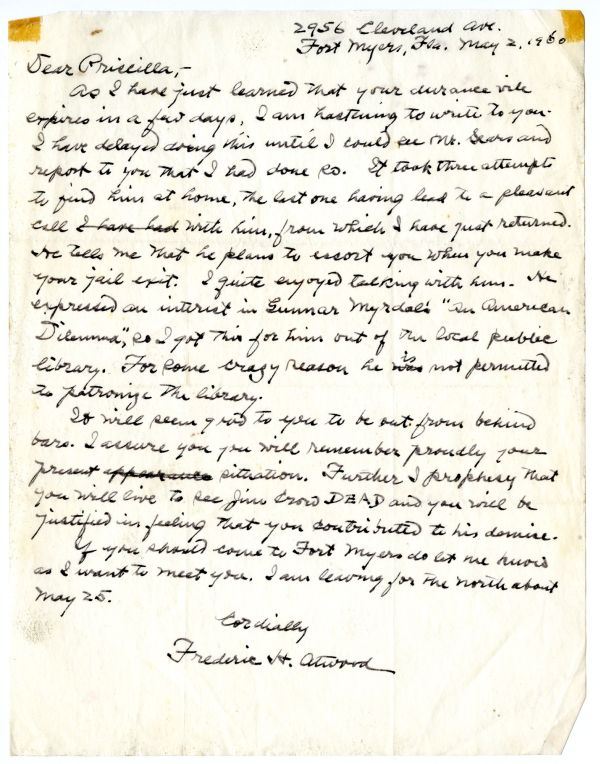 2956 Cleveland Ave.
Fort Myers, Fla. May 2, 1960
Dear Priscilla,-
As I have just learned that your durance vile
expires in a few days, I am hastening to write to you.
I have delayed doing this until I could see Mr. Sears and
report to you that I had done so. It took three attempts
to find him at home, the last one having lead to a pleasant
call I have had with him, from which I have just returned.
He tells me that he plans to escort you when you make
your jail exit. I quite enjoyed talking with him. He
expressed an interest in Gunnar Myrdal's "An American
Dilemma", so I got this for him out of the local public
library. For some crazy reason he is not permitted
to patronize the library.
It will seem good to you to be out from behind
bars. I assure you you will remember proudly your
present appearance situation. Further I prophesy that
you will live to see Jim Crow DEAD and you will be
justified in feeling that you contributed to his demise.
If you should come to Fort Myers do let me know
as I want to meet you. I am leaving for the North about
May 25.
Cordially
Frederic H. Atwood